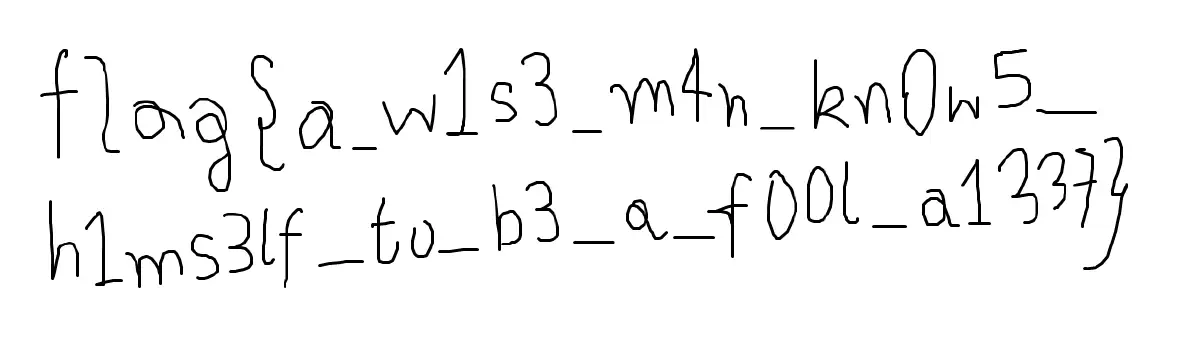 flag{a_w1s3_m4n_kn0w5_
h1ms3lf_to_b3_a_f00l_a13337}